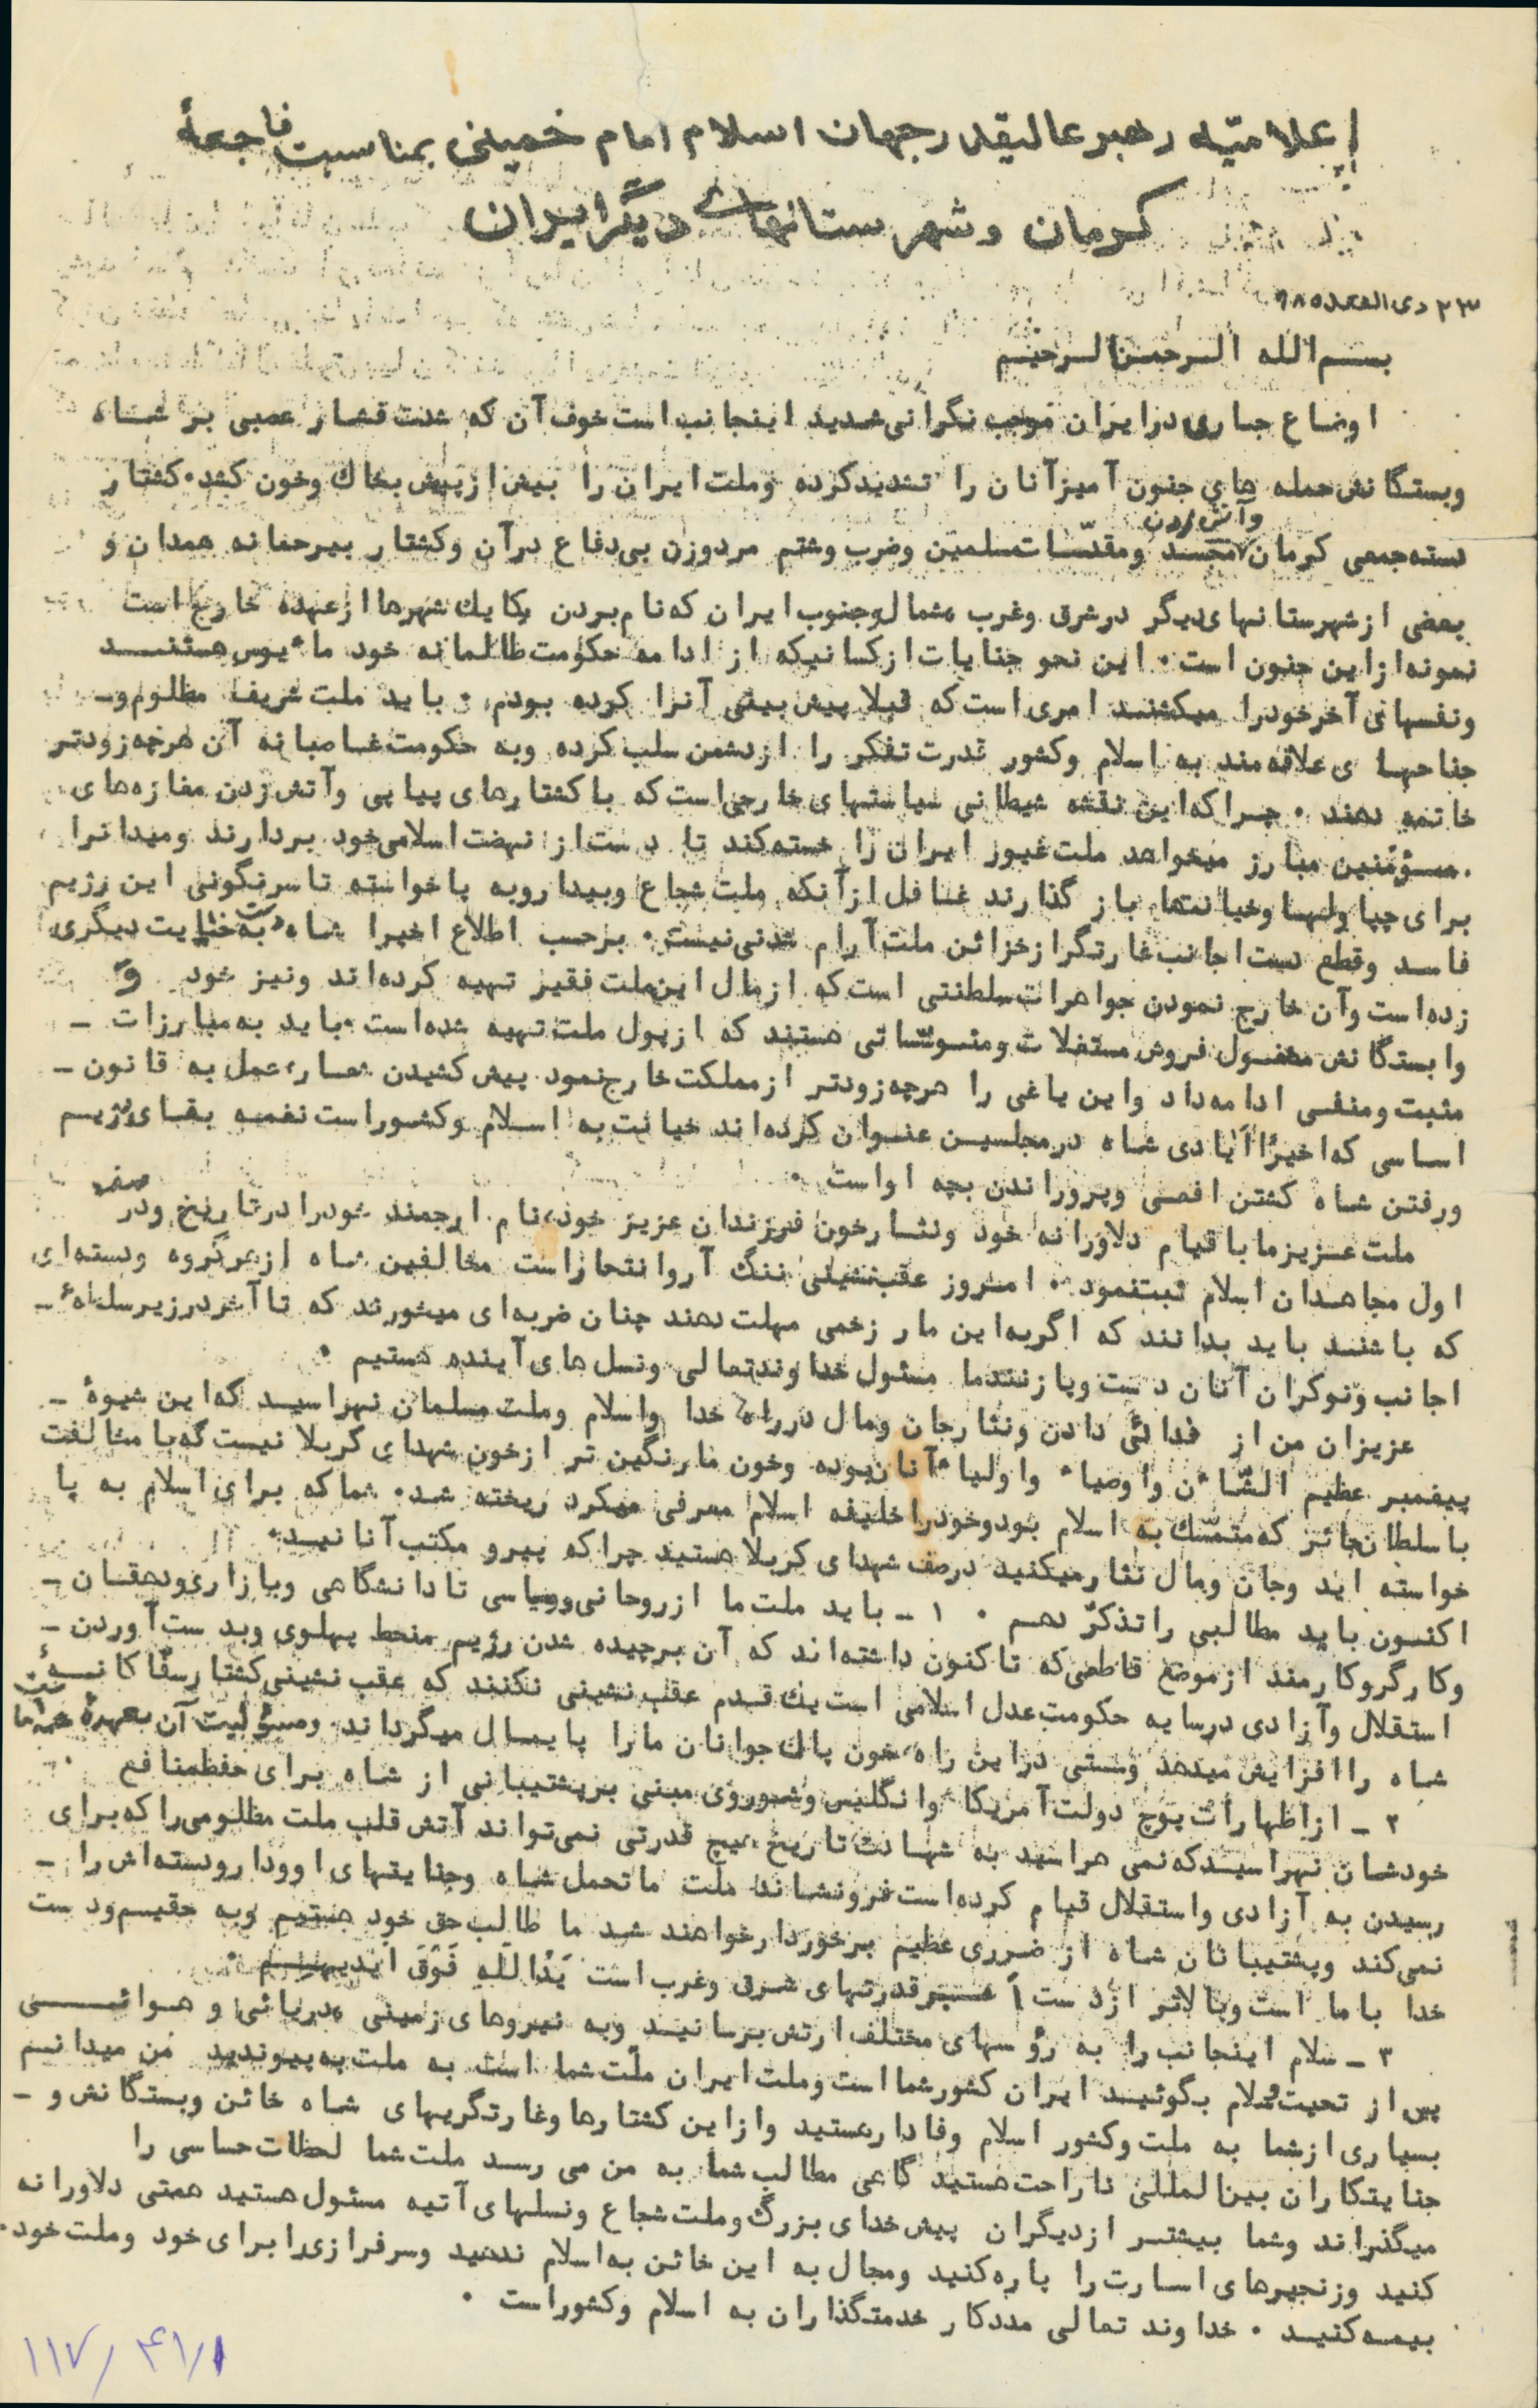 إعلامیّه رهبر عالیقدر جهان اسلام امام خمینی بمناسبت فاجعهٔ
کرمان و شهرستانهای دیگر ایران
۲۳ ذی القعده ۹۸
بسم الله الرحمن الرحیم
اوضاع جاری در ایران موجب نگرانی شدید اینجانب است خوف آن که شدت فشار عصبی بر شاه
وبستگانش حمله های جنون آمیز آنان را تشدید کرده وملت ایران را بیش از پیش بخاک وخون کشد. کشتار
دسته جمعی کرمان وآتش زدن مسجد ومقدّسات مسلمین وضرب وشتم مردوزن بی دفاع در آن وکشتار بیرحمانه همدان و
بعضی از شهرستانهای دیگر در شرق وغرب، شمال وجنوب ایران که نام بردن یکایک شهرها از عهده خارج است
نمونه از این جنون است. این نحو جنایات از کسانیکه از ادامه حکومت ظالمانه خود ماءیوس هستند
ونفسهای آخر خودرا میکشند امری است که قبلا پیش بینی آنرا کرده بودم. باید ملت شریف مظلوم و-
جناحهای علاقه مند به اسلام وکشور قدرت تفکر را از دشمن سلب کرده وبه حکومت غاصبانه آن هرچه زودتر
خاتمه دهند. چرا که این نقشه شیطانی سیاستهای خارجی است که با کشتارهای پیاپی وآتش زدن مغازه های
مؤمنین مبارز میخواهد ملت غیور ایران را خسته کند تا دست از نهضت اسلامی خود بردارند ومیدانرا
برای چپاولها وخیانتها باز گذارند غافل از آنکه ملت شجاع وبیدار وبه پا خواسته تا سرنگونی این رژیم
فاسد وقطع دست اجانب غارتگر از خزائن ملت آرام شدنی نیست. برحسب اطلاع اخیرا شاه دست به جنایت دیگری
زده است وآن خارج نمودن جواهرات سلطنتی است که از مال این ملت فقیر تهیه کرده اند ونیز خود و
وابستگانش مشغول فروش مستغلات ومئوسّساتی هستند که از پول ملت تهیه شده است. باید به مبارزات -
مثبت ومنفی ادامه داد واین یاغی را هرچه زودتر از مملکت خارج نمود پیش کشیدن شعار، عمل به قانون -
اساسی که اخیرًا آیادی شاه در مجلسین عنوان کرده اند خیانت به اسلام وکشور است نغمه بقای رژیم
ورفتن شاه کشتن افعی وپروراندن بچه اواست.
ملت عزیز ما با قیام دلاورانه خود ونثار خون فرزندان عزیز خود، نام ارجمند خودرا در تاریخ ودر صف
اول مجاهدان اسلام ثبت نمود. امروز عقب نشینی ننگ آر وانتحار است مخالفین شاه از هر گروه ودسته ای
که باشند باید بدانند که اگر به این مار زخمی مهلت دهند چنان ضربه ای میخورند که تا آخر در زیر سلطهٔ -
اجانب ونوکران آنان دست وپا زنند ما مسئول خداوند تعالی ونسل های آینده هستیم.
عزیزان من از فدائی دادن ونثار جان ومال در راه خدا واسلام وملت مسلمان نهراسید که این شیوهٔ -
پیغمبر عظیم الشّاءن واوصیاء واولیاء آنان بوده وخون ما رنگین تر از خون شهدای کربلا نیست که با مخالفت
با سلطان جائر که متمسّک به اسلام بود وخودرا خلیفه اسلام معرفی میکرد ریخته شد. شما که برای اسلام به پا
خواسته اید وجان ومال نثار میکنید در صف شهدای کربلا هستید چرا که پیرو مکتب آنانید.
اکنون باید مطالبی را تذکّر دهم. ۱ - باید ملت ما از روحانی وسیاسی تا دانشگاهی وبازاری ودهقان -
وکارگر وکارمند از موضع قاطعی که تاکنون داشته اند که آن برچیده شدن رژیم منحط پهلوی وبدست آوردن -
استقلال وآزادی در سایه حکومت عدل اسلامی است یک قدم عقب نشینی نکنند که عقب نشینی کشتار سفّاکانهٔ
شاه را افزایش میدهد وسستی در این راه، خون پاک جوانان ما را پایمال میگرداند. ومسئولیت آن بعهدهٔ همهٔ ما است
۲ - از اظهارات پوچ دولت آمریکا، وانگلیس وشوروی مبنی بر پشتیبانی از شاه برای حفظ منافع
خودشان نهراسید که نمی هراسید به شهادت تاریخ، هیچ قدرتی نمی تواند آتش قلب ملت مظلومی را که برای
رسیدن به آزادی واستقلال قیام کرده است فرونشاند ملت ما تحمل شاه وجنایتهای او ودار ودسته اش را -
نمی کند وپشتیبانان شاه از ضرری عظیم برخوردار خواهند شد ما طالب حق خود هستیم وبه حقیم ودست
خدا با ما است وبالاتر از دست قدرتهای شرق وغرب است یَدُاللّهِ فَوْقَ اَیْدیهِم.
۳ - سلام اینجانب را به رؤسهای مختلف ارتش برسانید وبه نیروهای زمینی، دریائی و هوائی
پس از تحیت وسلام بگوئید ایران کشور شما است وملت ایران ملّت شما است به ملت به پیوندید من میدانم
بسیاری از شما به ملت وکشور اسلام وفادار هستید واز این کشتارها وغارتگریهای شاه خائن وبستگانش و -
جنایتکاران بین المللی ناراحت هستید گاهی مطالب شما به من می رسد ملت شما لحظات حساسی را
میگذراند وشما بیشتر از دیگران پیش خدای بزرگ وملت شجاع ونسلهای آتیه مسئول هستید همتی دلاورانه
کنید وزنجیرهای اسارت را پاره کنید ومجال به این خائن به اسلام ندهید وسرفرازی را برای خود وملت خود.
بیمه کنید. خداوند تعالی مددکار خدمتگذاران به اسلام وکشور است.
۱۱۷/۴۱/۱